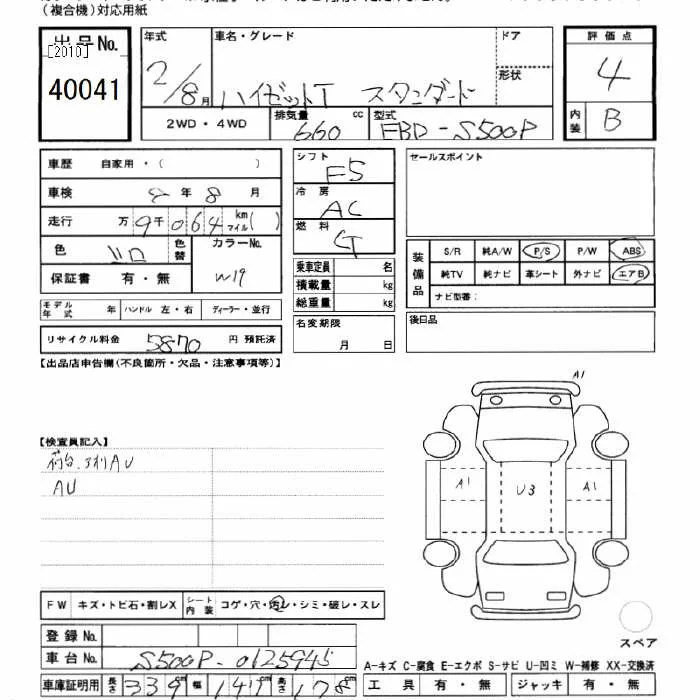 (複合機)対応用紙
出品No.
[2010]
40041
年式
2/8月
車名・グレード
ハイゼットT スタンダード
ドア
形状
評価点
4
内装
B
2WD・4WD
排気量 660 cc
型式 EBD-S500P
車歴 自家用・( )
車検 2年8月
走行 万9千064 km マイル( )
色 シロ
色替
カラーNo.
W19
保証書 有・無
モデル年式 年 ハンドル 左・右 ディーラー・並行
リサイクル料金 5870 円 預託済
シフト
F5
冷房
AC
燃料
乗車定員 名
積載量 kg
総重量 kg
名変期限
月 日
セールスポイント
装備品
S/R 純A/W P/S P/W ABS
純TV 純ナビ 革シート 外ナビ エアB
ナビ型番:
後日品
【出品店申告欄(不良箇所・欠品・注意事項等)】
【検査員記入】
荷台、アオリAU
AU
A1
A1
U3
A1
FW キズ・トビ石・割レX
シート内装 コゲ・穴・汚レ・シミ・破レ・スレ
登録No.
車台No. S500P-0125945
車庫証明用 長さ339cm 幅147cm 高さ178cm
スペア
A-キズ C-腐食 E-エクボ S-サビ U-凹ミ W-補修 XX-交換済
工具 有・無 ジャッキ 有・無